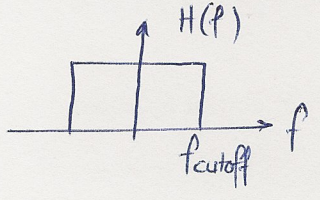 H(f)
f
fcutoff